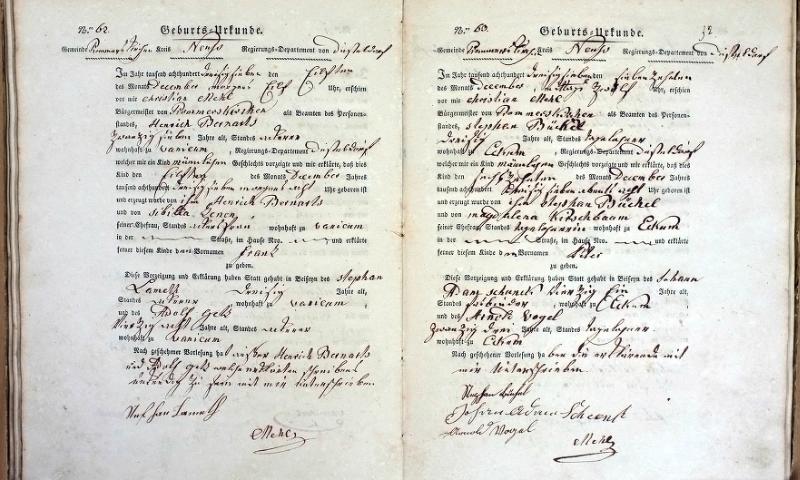 Nro 62. Geburts-Urkunde.
Gemeinde Kreis Neuss Regierungs-Departement von Düsseldorf
Im Jahr tausend achthundert dreisig sieben den Eilften
des Monats December morgens Eilf Uhr, erschien
vor mir christian Mehl
Bürgermeister von Rommerskirchen als Beamten des Personen-
standes, Henrich Bernarts
zwanzig sieben Jahre alt, Standes
wohnhaft zu vanicum, Regierungs-Departement Düsseldorf
welcher mir ein Kind männlichen Geschlechts vorzeigte und mir erklärte, daß dies
Kind den eilften des Monats December Jahres
tausend achthundert dreisig sieben morgens acht Uhr geboren ist
und erzeugt wurde von ihm Henrich Bernarts
und von Sibilla
seiner Ehefrau, Standes wohnhaft zu vanicum
in der Straße, im Hause Nro. und erklärte
ferner diesem Kinde den Vornamen
Frank
zu geben.
Diese Vorzeigung und Erklärung haben Statt gehabt in Beiseyn des stephan
Lamett dreisig Jahre alt,
Standes wohnhaft zu vanicum
und des Adolf Getz
vierzig acht Jahre alt, Standes
wohnhaft zu vanicum
Nach geschehener Vorlesung hat außer Henrich Bernarts
und Adolf Getz welche erklärten schreibens
zu sein mit mir unterschrieben
Stephan Lamett
Mehl
Nro 63. Geburts-Urkunde. 32
Gemeinde Kreis Neuss Regierungs-Departement von Düsseldorf
Im Jahr tausend achthundert dreisig sieben den siebenzehnten
des Monats December mittags zwölf Uhr, erschien
vor mir christian Mehl
Bürgermeister von Rommerskirchen als Beamten des Personen-
standes, stephan Büchel
dreisig Jahre alt, Standes taglöhner
wohnhaft zu Eckum, Regierungs-Departement Düsseldorf
welcher mir ein Kind männlichen Geschlechts vorzeigte und mir erklärte, daß dies
Kind den sechszehnten des Monats December Jahres
tausend achthundert dreisig sieben abends acht Uhr geboren ist
und erzeugt wurde von ihm stephan Büchel
und von magdalena Kirschbaum
seiner Ehefrau, Standes taglöhnerin wohnhaft zu Eckum
in der Straße, im Hause Nro. und erklärte
ferner diesem Kinde den Vornamen
Peter
zu geben.
Diese Vorzeigung und Erklärung haben Statt gehabt in Beiseyn des Johann
Adam schunck vierzig ein Jahre alt,
Standes faßbinder wohnhaft zu Eckum
und des Arnold Vogel
zwanzig drei Jahre alt, Standes taglöhner
wohnhaft zu Eckum
Nach geschehener Vorlesung haben die erklärende mit
mir unterschrieben.
Stephan Büchel
Johan Adam
Arnold Vogel
Mehl